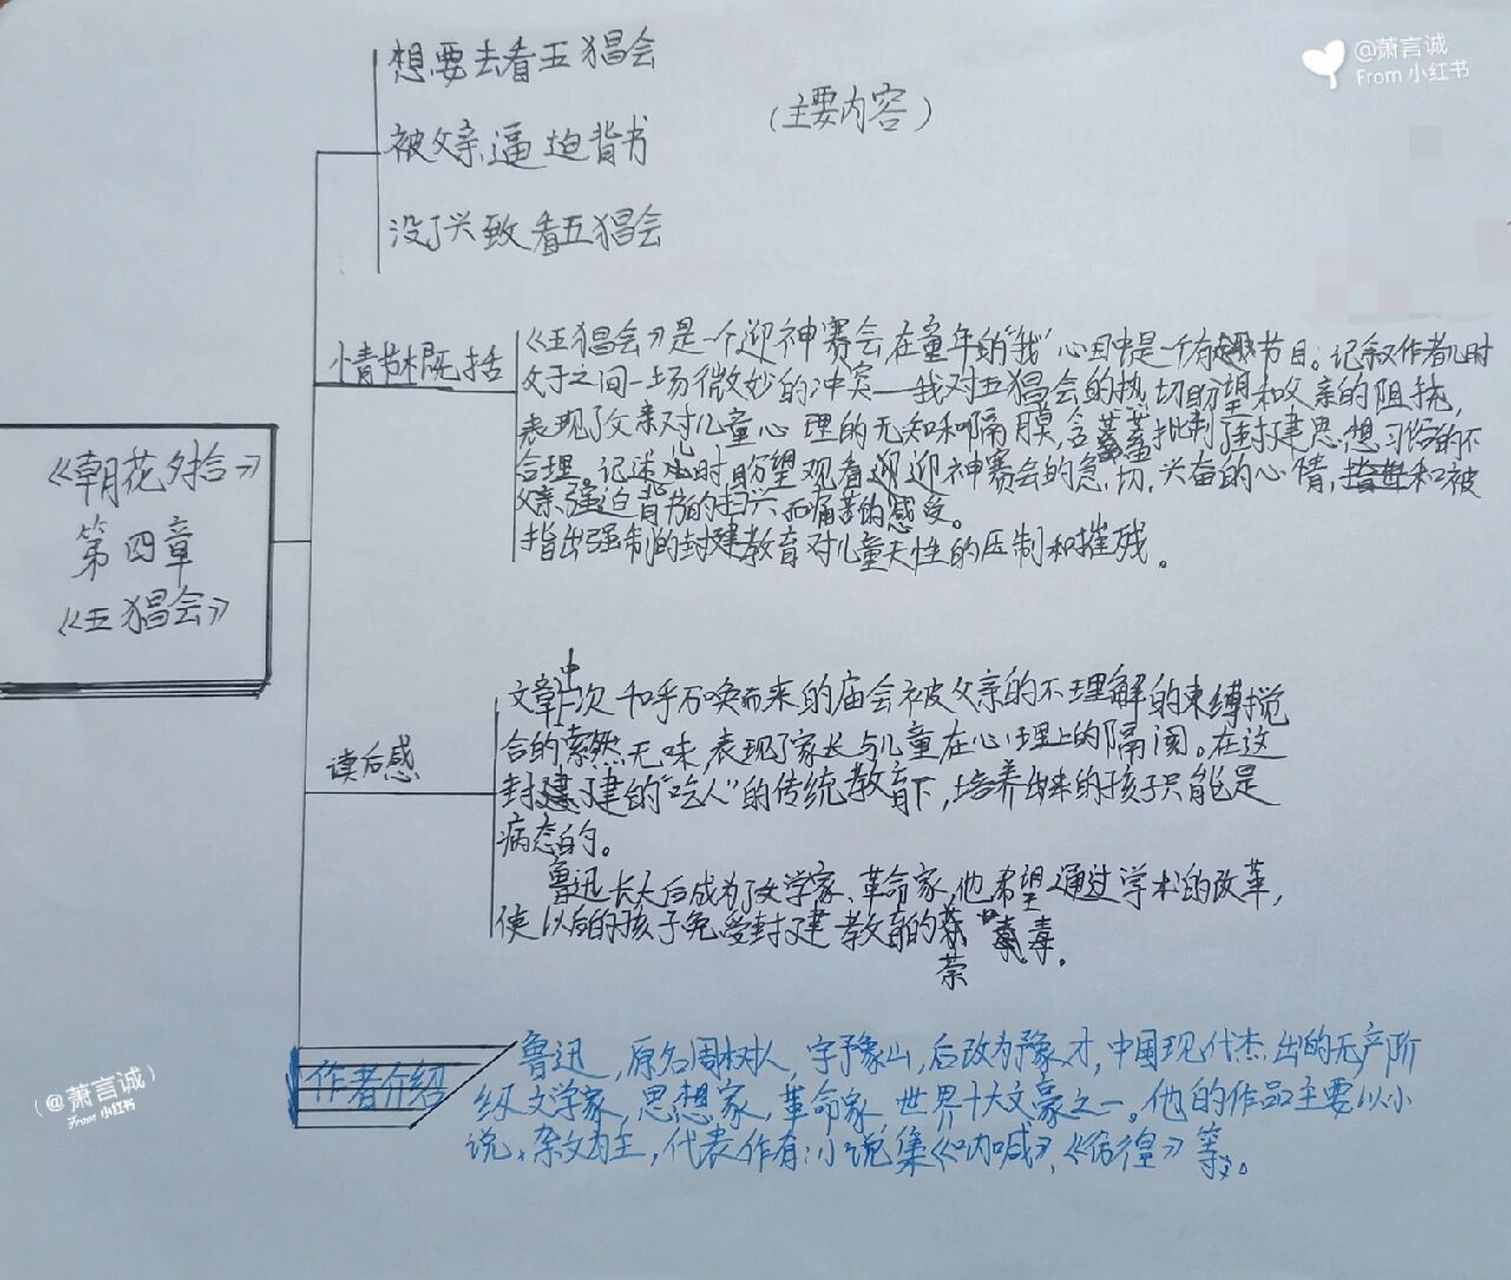 想要去看五猖会
被父亲逼迫背书
(主要内容)
没了兴致看五猖会
@萧言诚
From 小红书
《朝花夕拾》
第四章
《五猖会》
情节概括
《五猖会》是一个迎神赛会在童年的"我"心目中是一个有趣节日。记叙作者儿时
父子之间一场微妙的冲突——我对五猖会的热切盼望和父亲的阻挠,
表现了父亲对儿童心理的无知和隔膜,含蓄批判了封建思想习俗的不
合理。记述儿时盼望观看迎迎神赛会的急切,兴奋的心情,和被
父亲强迫背书的扫兴而痛苦的感受。
指出强制的封建教育对儿童天性的压制和摧残。
读后感
文章中一次千呼万唤而来的庙会被父亲的不理解的束缚搅
合的索然无味,表现了家长与儿童在心理上的隔阂。在这
封建的"吃人"的传统教育下,培养出来的孩子只能是
病态的。
鲁迅长大后成为了文学家、革命家,他希望通过学术的改革,
使以后的孩子免受封建教育的荼毒。
作者介绍
鲁迅,原名周树人,字豫山,后改为豫才,中国现代杰出的无产阶
级文学家,思想家,革命家,世界十大文豪之一。他的作品主要以小
说、杂文为主,代表作有:小说集《呐喊》、《彷徨》等。
@萧言诚
From 小红书